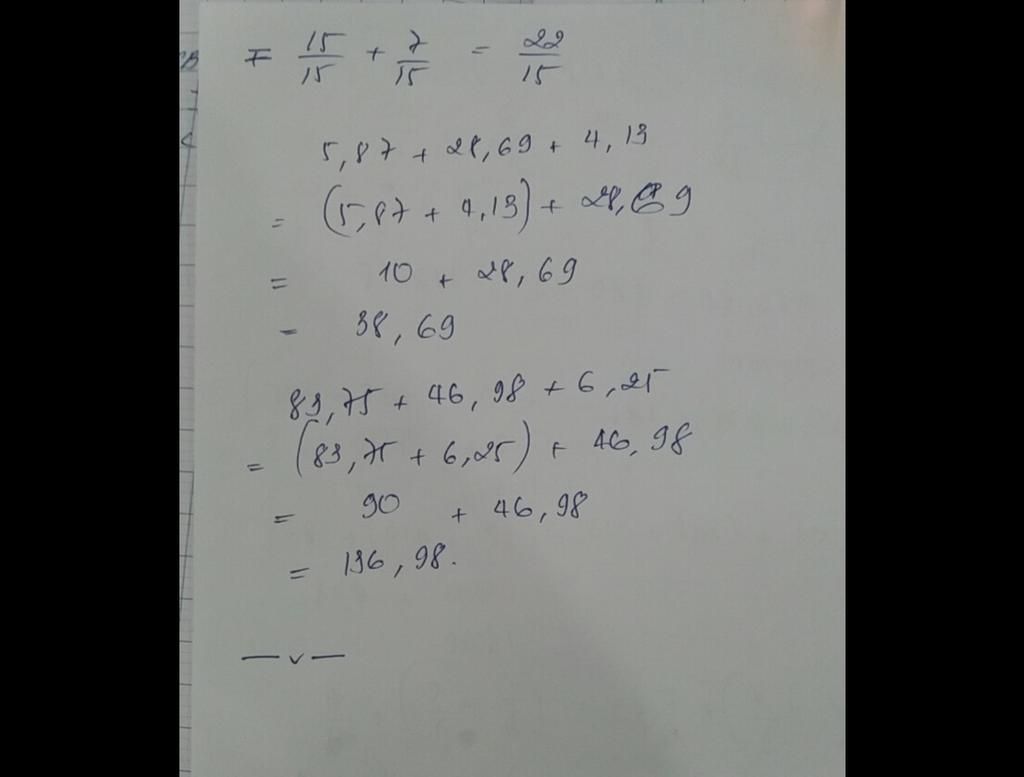 = 15/15 + 7/15 = 22/15
5,87 + 28,69 + 4,13
= (5,87 + 4,13) + 28,69
= 10 + 28,69
= 38,69
83,75 + 46,98 + 6,25
= (83,75 + 6,25) + 46,98
= 90 + 46,98
= 136,98.